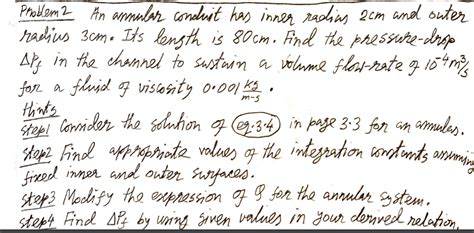 Problem 2 An annular conduit has inner radius 2cm and outer
radius 3cm. Its length is 80cm. Find the pressure-drop
ΔPf in the channel to sustain a volume flow-rate of 10⁻⁴ m³/s
for a fluid of viscosity 0.001 kg/m-s .
Hints
Step1 Consider the solution of eq.3.4 in page 3.3 for an annulus.
Step2 Find appropriate values of the integration constants assuming
fixed inner and outer surfaces.
Step3 Modify the expression of Q for the annular system.
Step4 Find ΔPf by using given values in your derived relation.